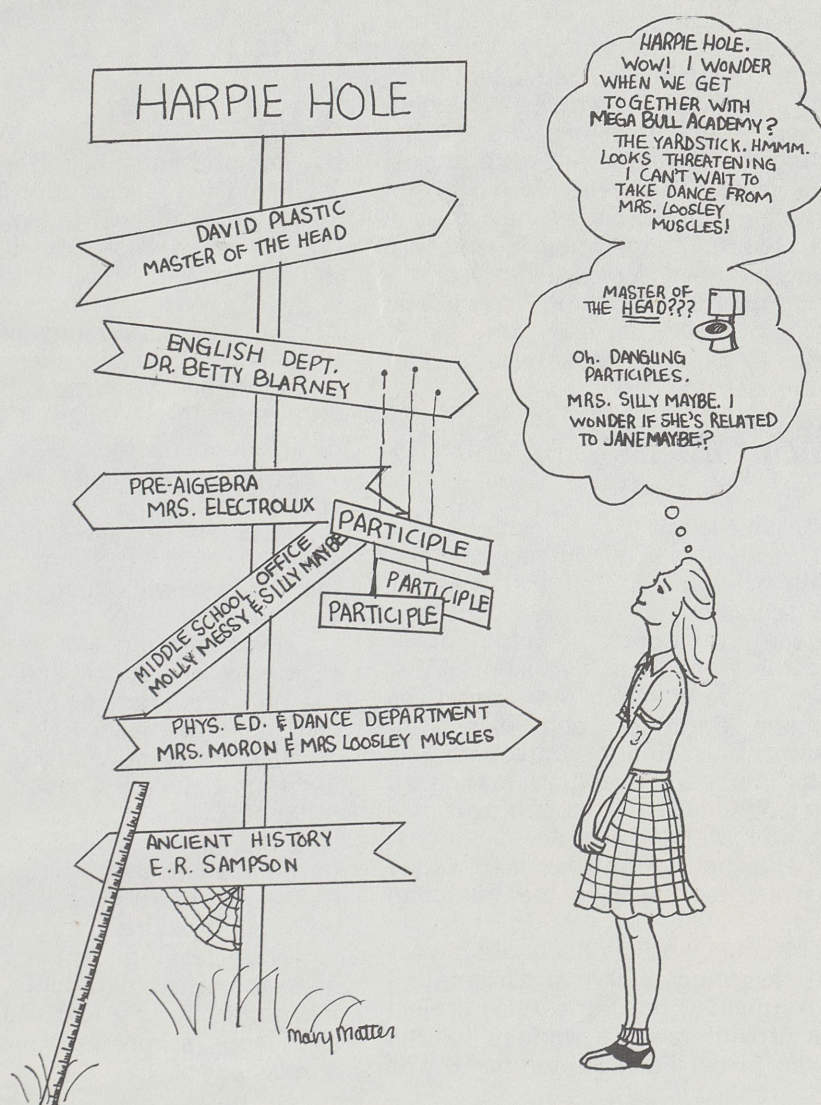 HARPIE HOLE
DAVID PLASTIC
MASTER OF THE HEAD
ENGLISH DEPT.
DR. BETTY BLARNEY
PRE-AlGEBRA
MRS. ELECTROLUX
PARTICIPLE
PARTICIPLE
PARTICIPLE
MIDDLE SCHOOL OFFICE
MOLLY MESSY & SILLY MAYBE
PHYS. ED. & DANCE DEPARTMENT
MRS. MORON & MRS LOOSLEY MUSCLES
ANCIENT HISTORY
E.R. SAMPSON
Mary Matter
HARPIE HOLE.
WOW! I WONDER
WHEN WE GET
TOGETHER WITH
MEGA BULL ACADEMY?
THE YARDSTICK. HMMM.
LOOKS THREATENING
I CAN'T WAIT TO
TAKE DANCE FROM
MRS. LOOSLEY
MUSCLES!
MASTER OF
THE HEAD???
Oh. DANGLING
PARTICIPLES.
MRS. SILLY MAYBE. I
WONDER IF SHE'S RELATED
TO JANE MAYBE?